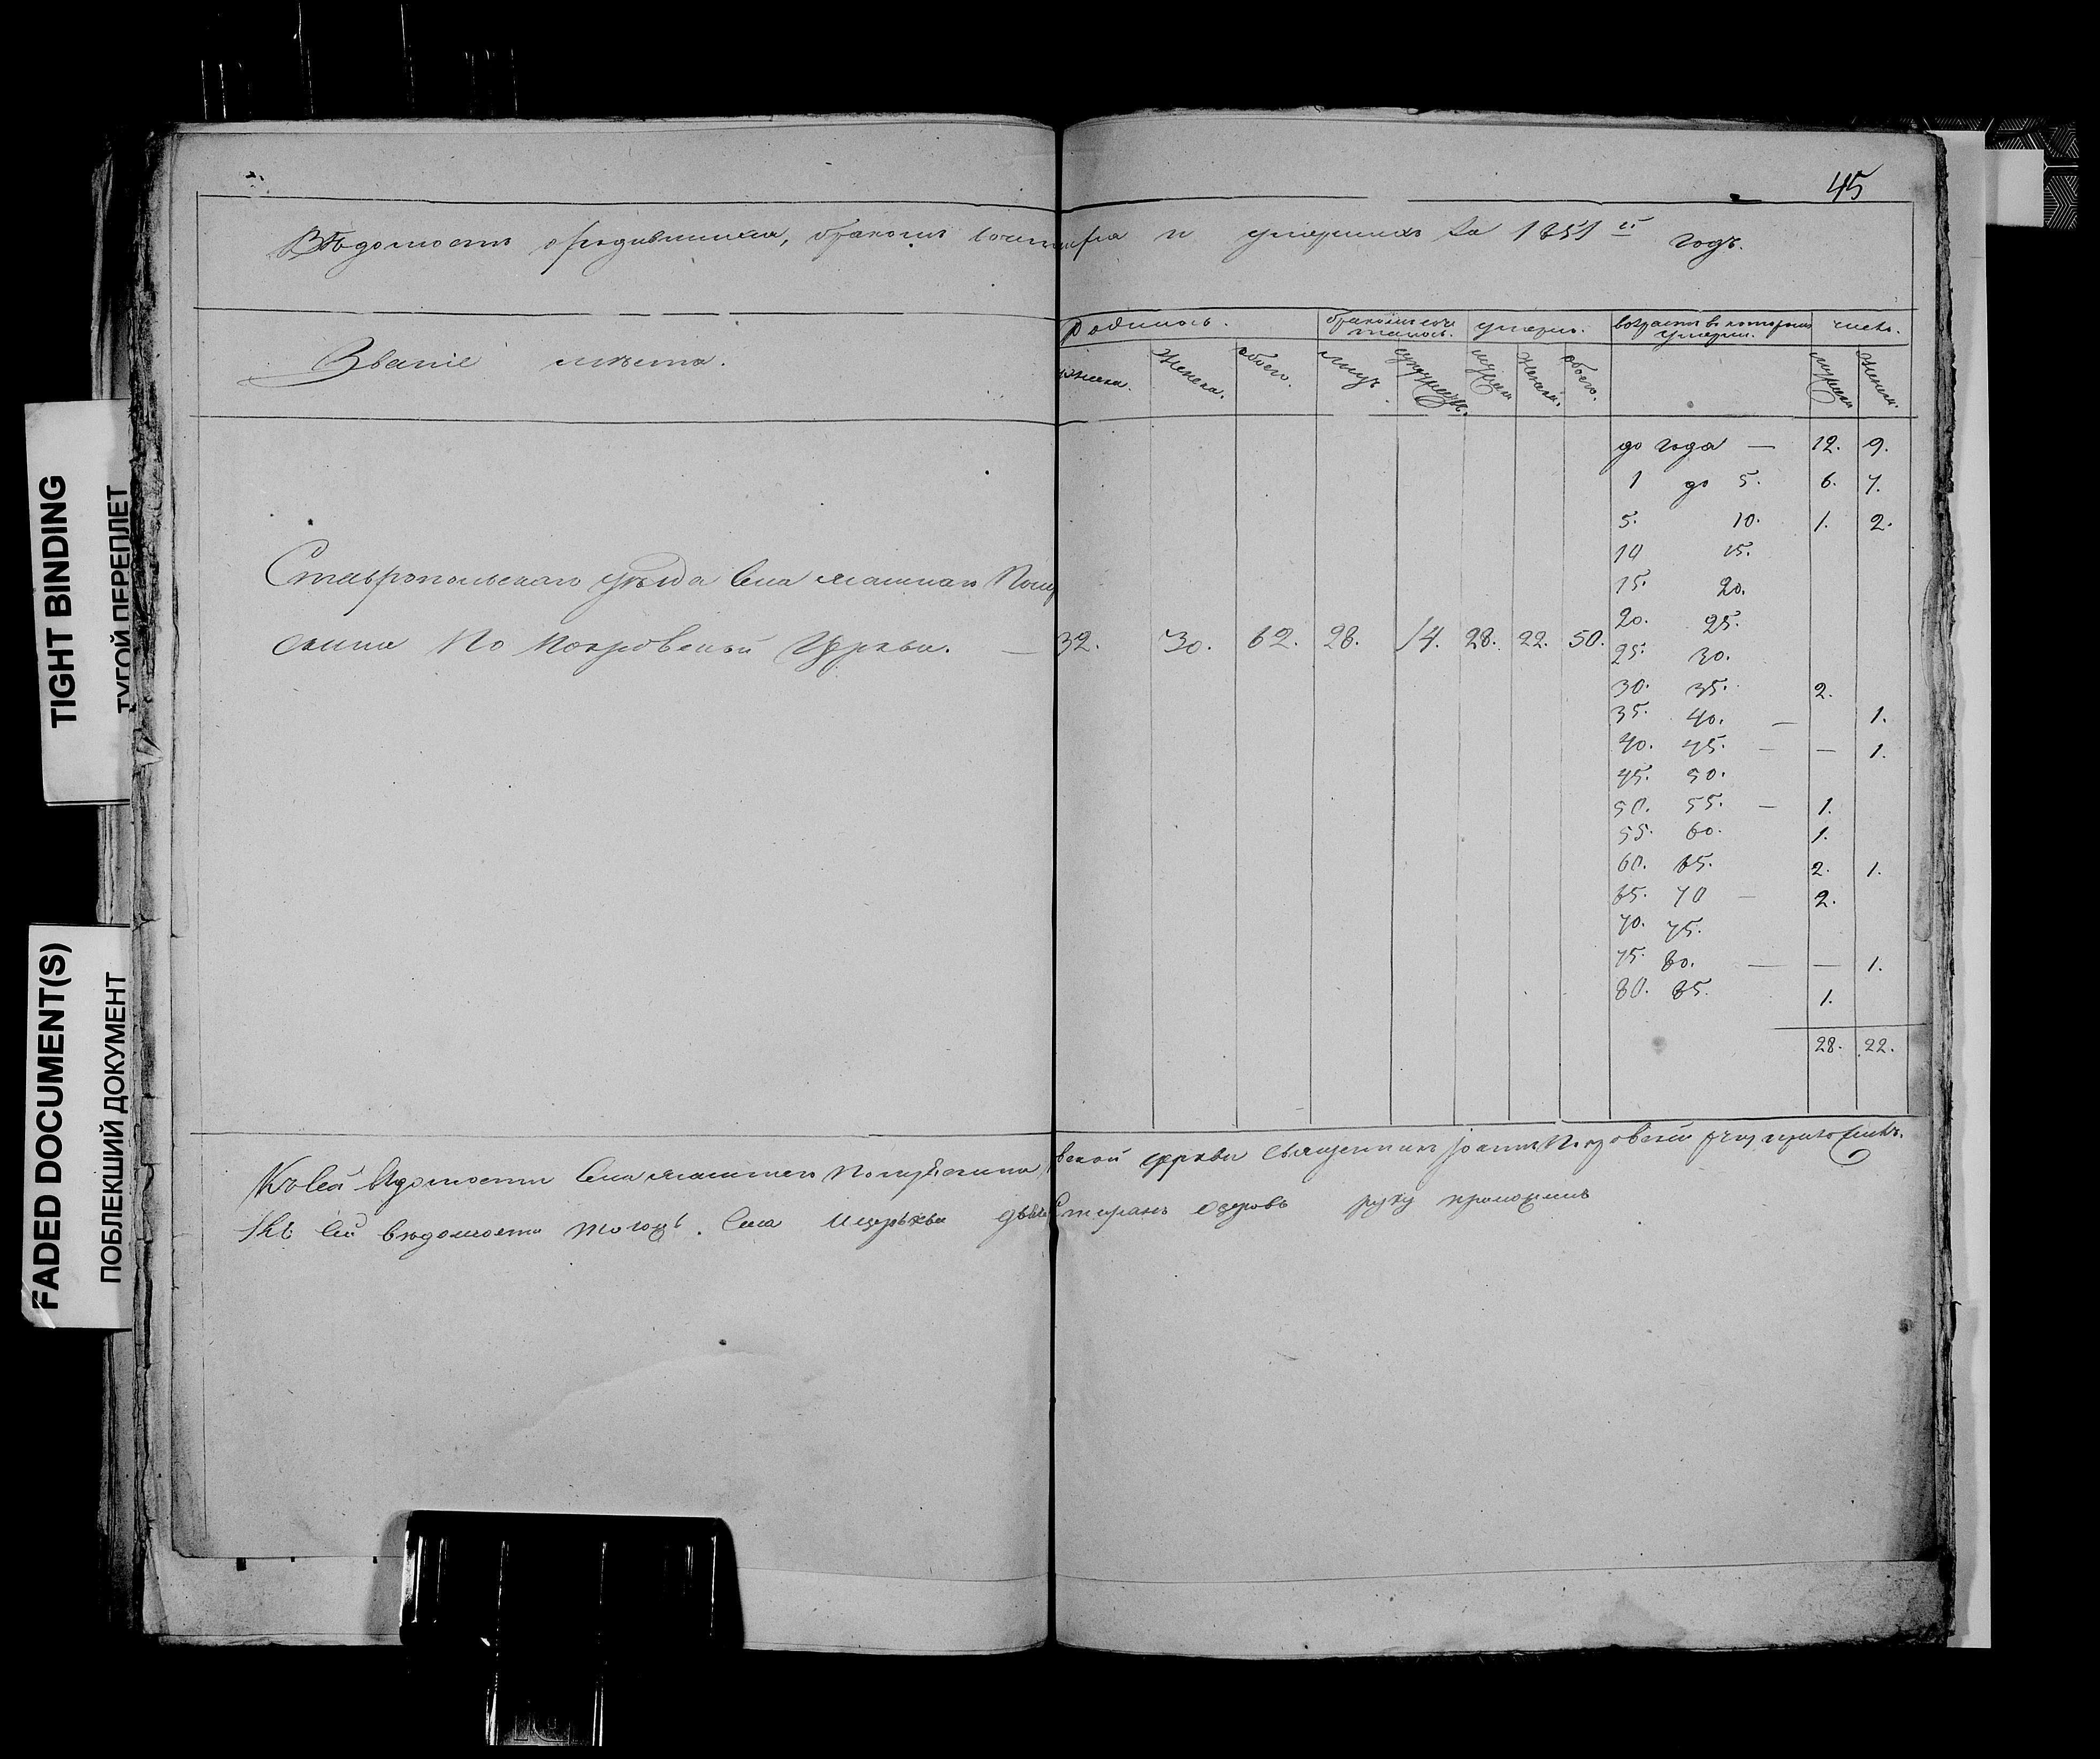 45
Вѣдомость о родившихся, бракомъ сочетавшихся и умершихъ за 1851 й годъ.
Званіе мѣста.
Родилось. бракомъ соче талось. умерло. возрастъ въ которомъ умерли. число.
женска. обоего. лицъ супружествъ. мужеска женска. обоего. мужеска женска.
до года — 12. 9.
1 до 5. 6. 7.
5. 10. 1. 2.
10 15.
15. 20.
20. 25.
Ставропольскаго уѣзда села
по Покровской Церкви. — 32. 30. 62. 28. 14. 28. 22. 50.
25. 30.
30. 35. 2.
35. 40. — 1.
40. 45. — — 1.
45. 50.
50. 55. — 1.
55. 60. 1.
60. 65. 2. 1.
65. 70 — 2.
70. 75.
75. 80. — — 1.
80. 85. 1.
28. 22.
Къ сей вѣдомости села церкви священникъ Іоаннъ руку приложилъ.
Къ сей вѣдомости тогожъ. села и церькви руку приложилъ
TIGHT BINDING
ТУГОЙ ПЕРЕПЛЕТ
FADED DOCUMENT(S)
ПОБЛЕКШИЙ ДОКУМЕНТ